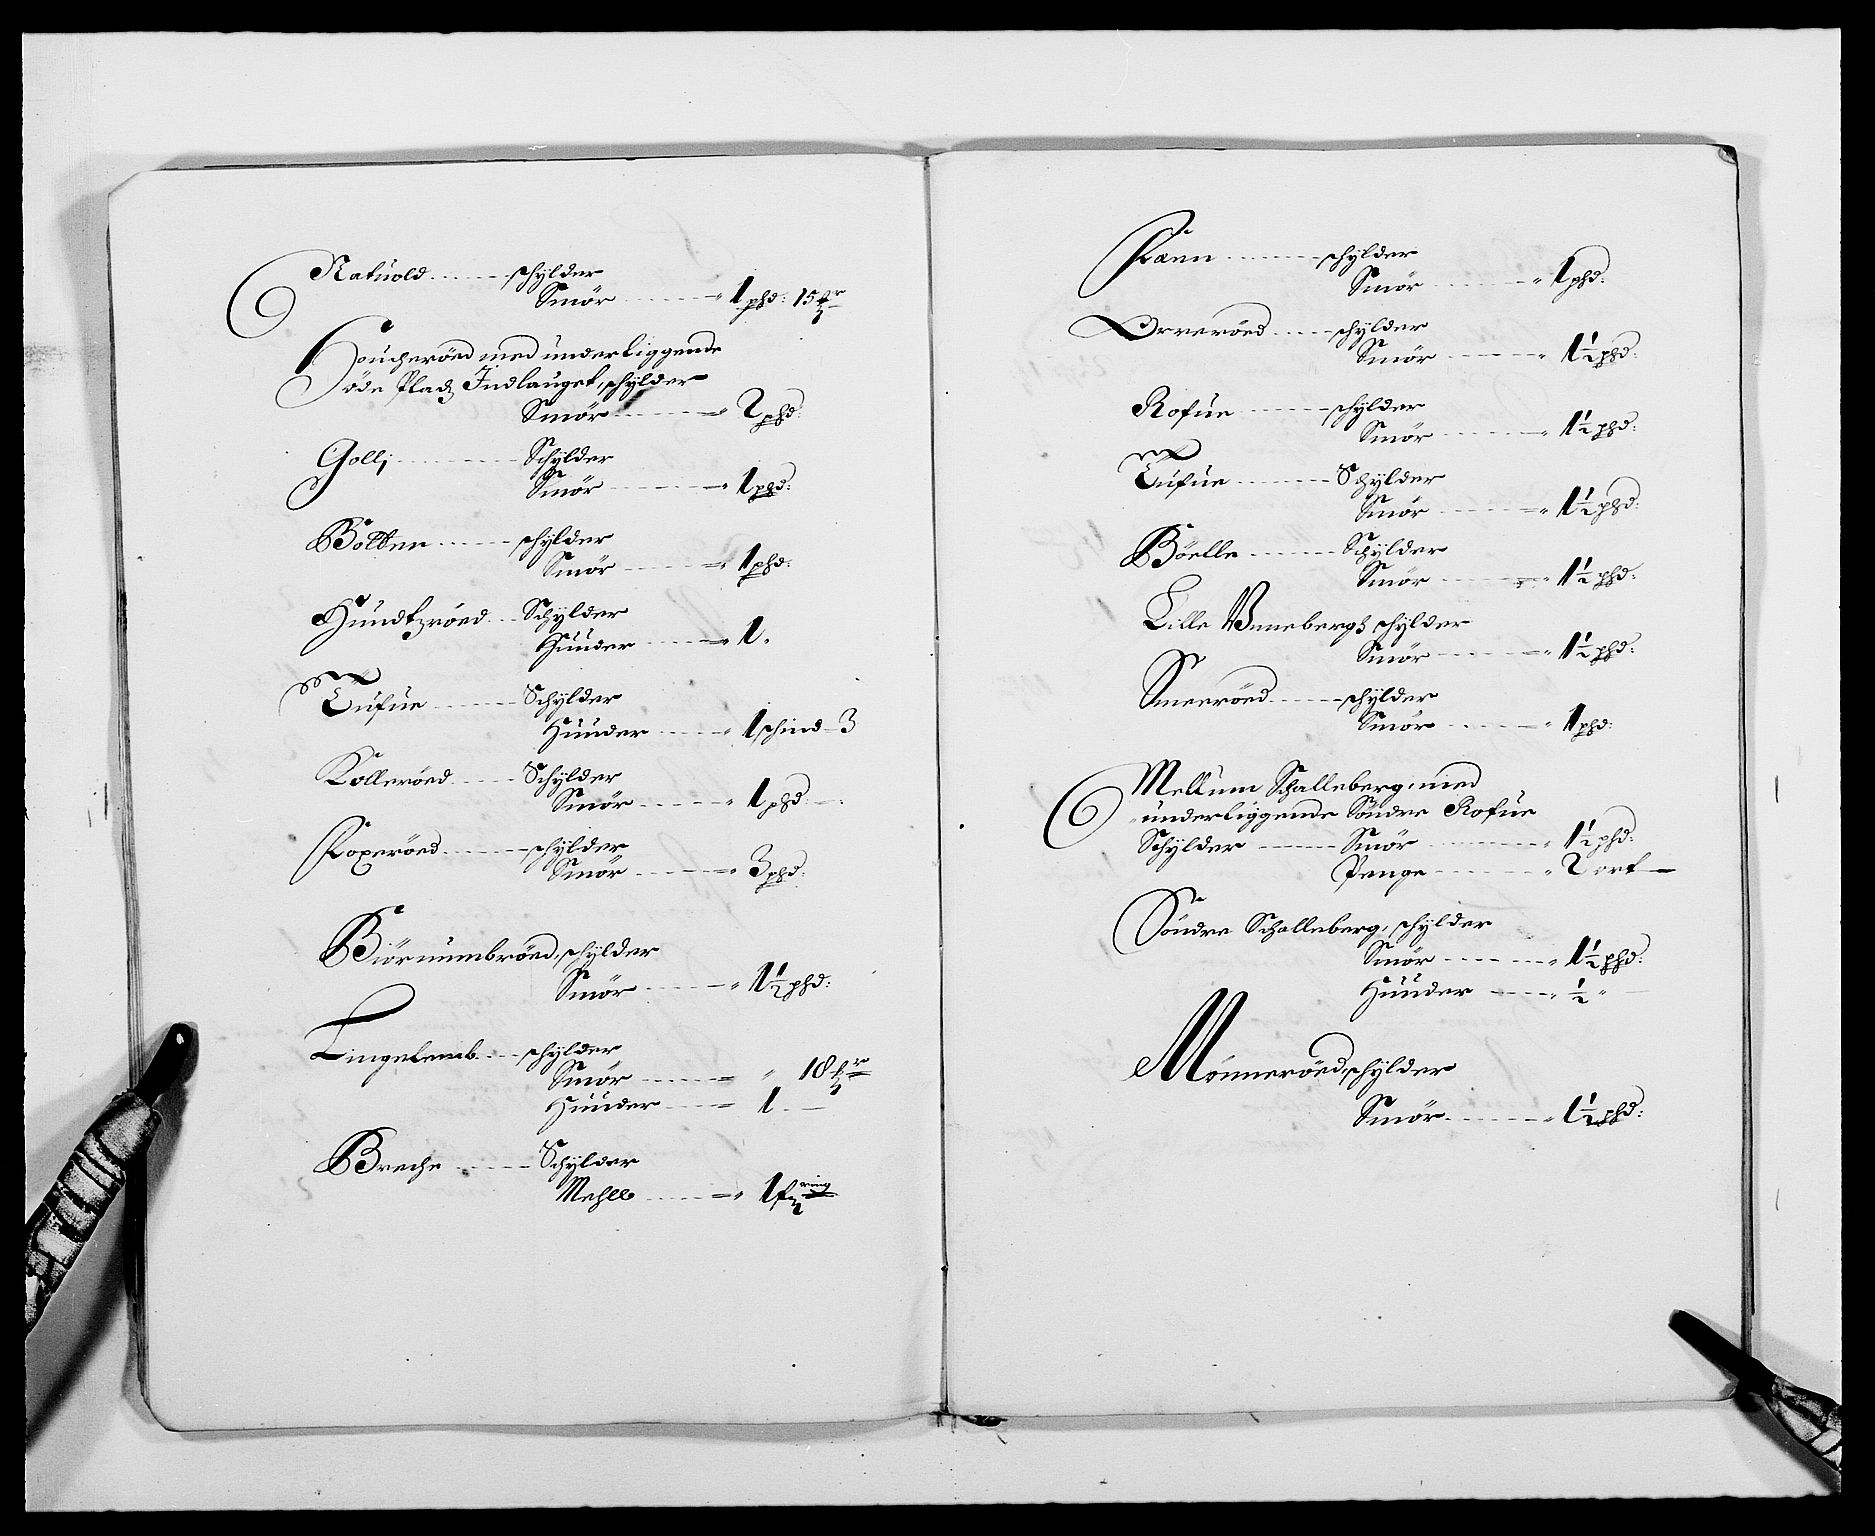 Natuold ...... schylder
Smör ...... 1 phd: 15
Houcheröed med underliggende
öde Pladz Indlauget, schylder
Smör ...... 2 phd:
Golli ...... Schylder
Smör ...... 1 phd:
Bolten ...... schylder
Smör ...... 1 phd:
Hundtzröed ... Schylder
Huuder ...... 1.
Tufue ...... Schylder
Huuder ...... 1 schind 3
Kolleröed ...... Schylder
Smör ...... 1 phd:
Roperöed ...... schylder
Smör ...... 3 phd:
Biörnumbröed, schylder
Smör ...... 1½ phd:
Lingelemb ... schylder
Smör ...... " 18
Huuder ...... 1. —
Breche ...... Schylder
Mehll ...... 1 fring
Ræn ...... schylder
Smör ...... 1 phd:
Orreröed ...... schylder
Smör ...... 1½ phd:
Rofue ...... schylder
Smör ...... 1½ phd:
Tufue ...... Schylder
Smör ...... 1½ phd:
Böelle ...... Schylder
Smör ...... 1½ phd:
Lille Unnebergh schylder
Smör ...... 1½ phd:
Smeeröed ...... schylder
Smör ...... 1 phd:
Mellum Schalleberg, med
underliggende Söndre Rofue
Schylder ...... Smör ...... 1½ phd:
Penge ...... 2 ort
Söndre Schalleberg, schylder
Smör ...... 1½ phd:
Huuder ...... ½ "
Mönneröed schylder
Smör ...... 1½ phd: